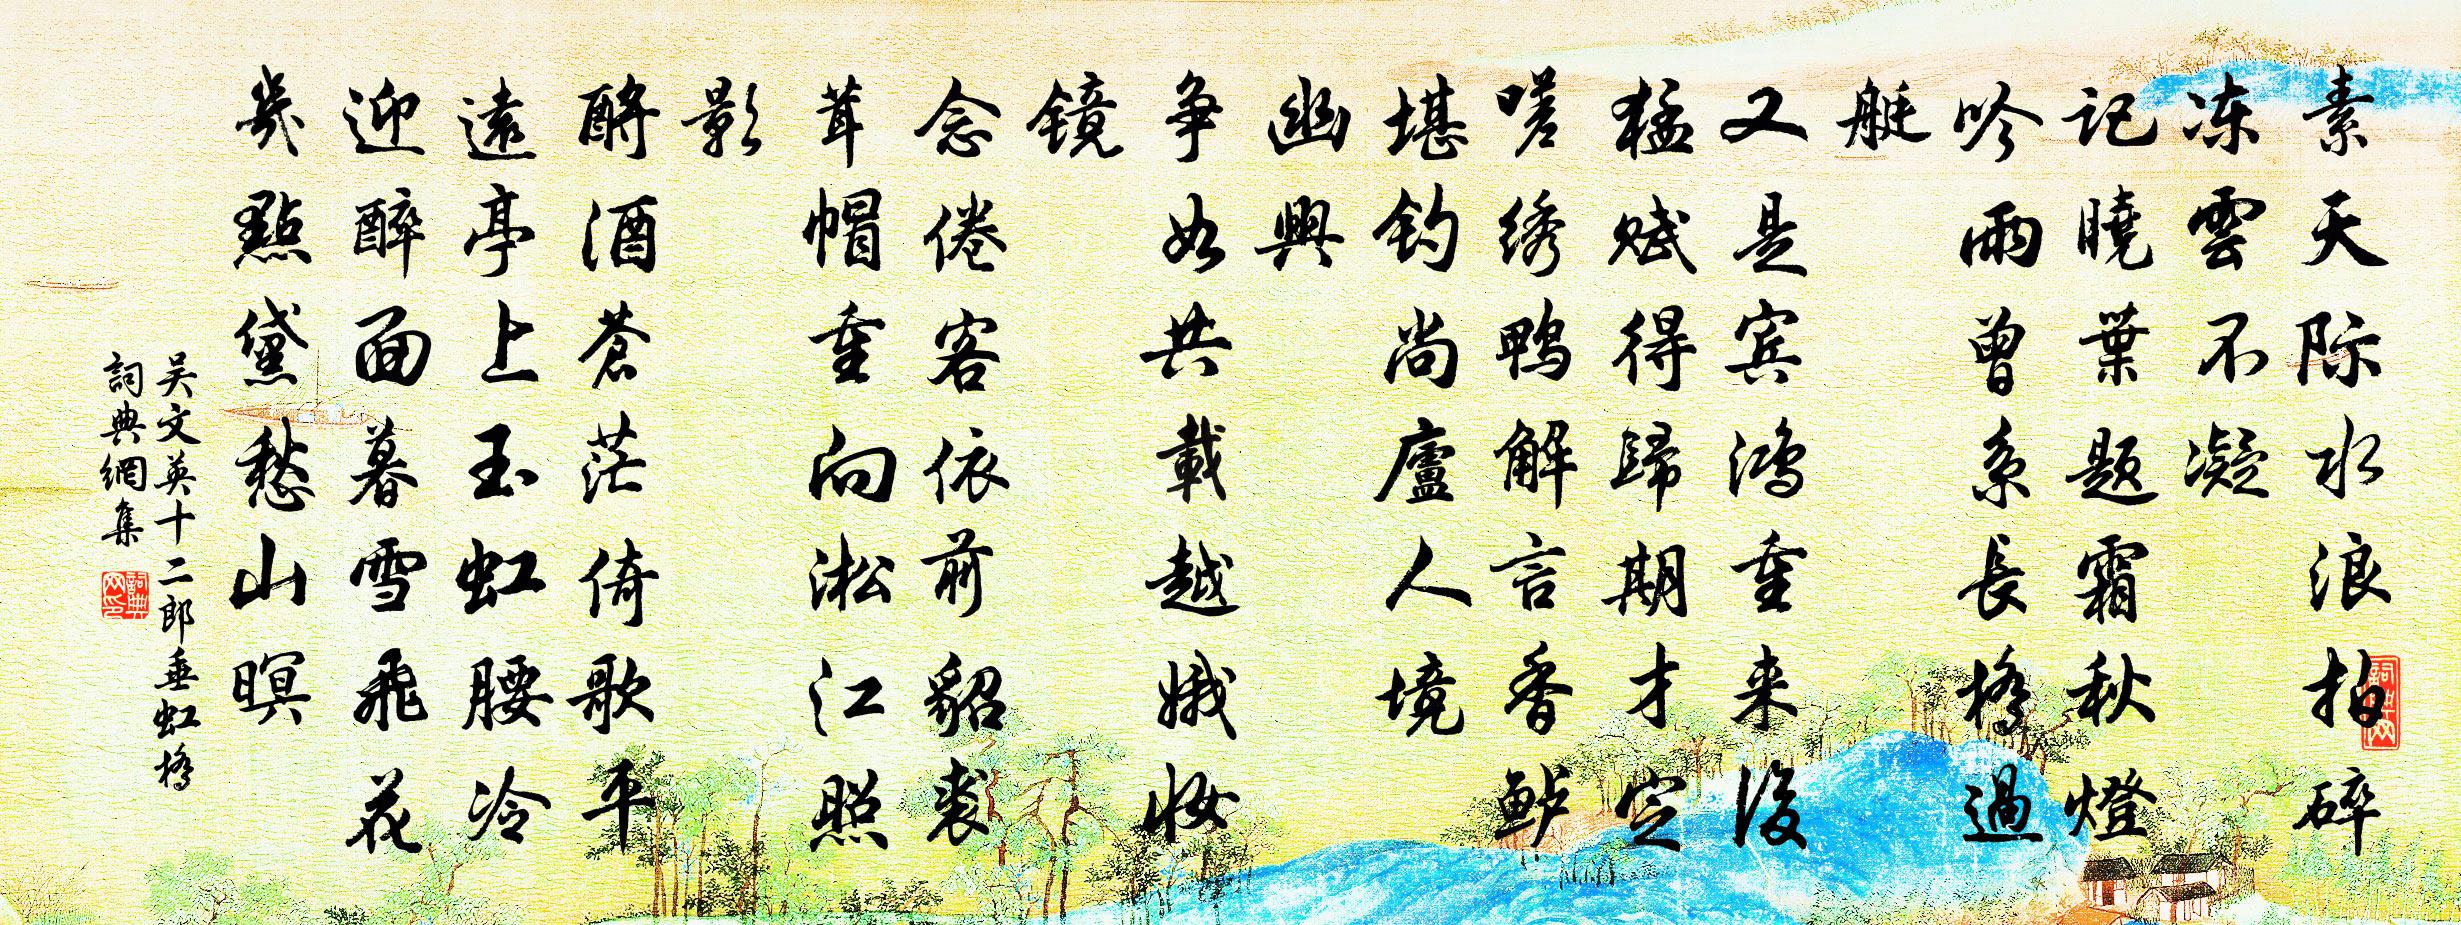 素天际水浪拍碎
冻雲不凝
记曉葉题霜秋燈
吟雨曾系長橋過
艇
又是宾鸿重来後
猛赋得歸期才定
嗟绣鸭解言香鲈
堪钓尚廬人境
幽興
争如共載越娥妆
镜
念倦客依前貂裘
茸帽重向淞江照
影
酹酒蒼茫倚歌平
遠亭上玉虹腰冷
迎醉面暮雪飛花
幾點黛愁山暝
吴文英十二郎垂虹橋
詞典網集
詞典网印
詞典网